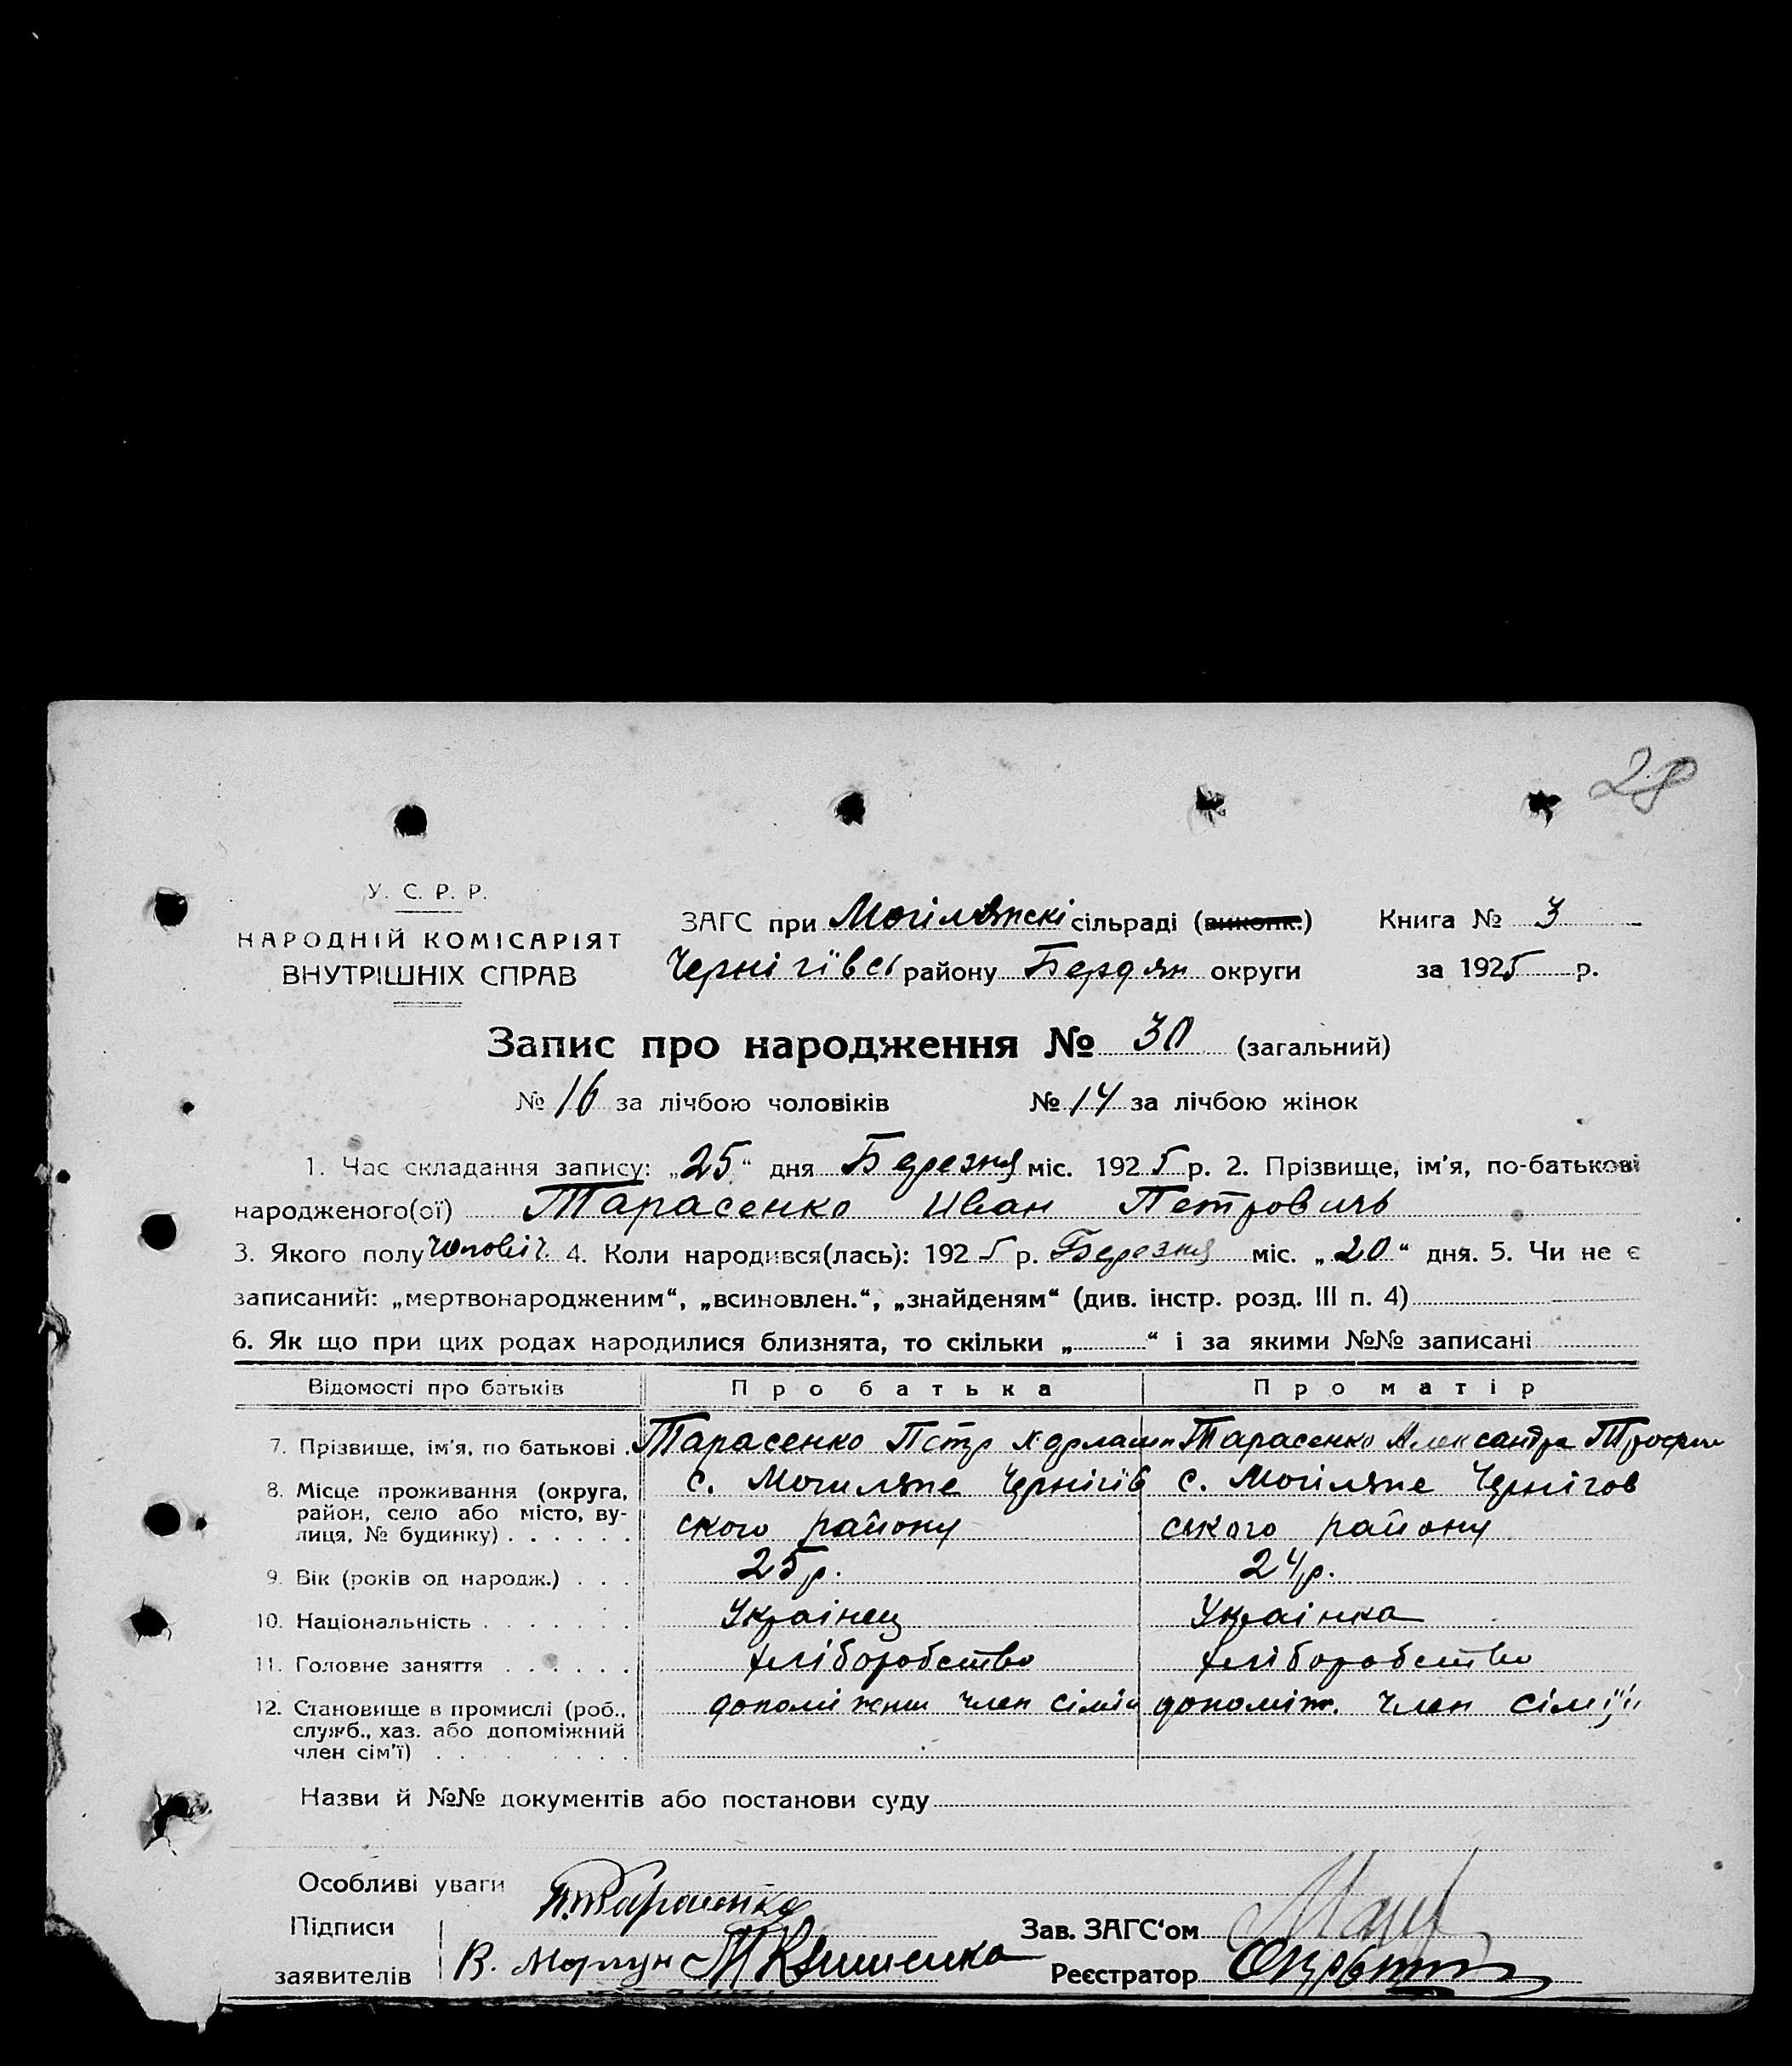 28
У. С. Р. Р.
НАРОДНІЙ КОМІСАРІЯТ
ВНУТРІШНІХ СПРАВ
ЗАГС при Могілянскі сільраді (виконк.) Книга № 3
Чернігївсь району Бердян округи за 1925 р.
Запис про народження № 30 (загальний)
№ 16 за лічбою чоловіків № 14 за лічбою жінок
1. Час складання запису: „25“ дня Березня міс. 1925 р. 2. Прізвище, ім'я, по-батькові
народженого(ої) Тарасенко Иван Петровичь
3. Якого полу чоловіч. 4. Коли народився(лась): 1925 р. Березня міс. „20“ дня. 5. Чи не є
записаний: „мертвонародженим“, „всиновлен.“, „знайденям“ (див. інстр. розд. III п. 4)
6. Як що при цих родах народилися близнята, то скільки „ “ і за якими №№ записані
Відомості про батьків Про батька Про матір
7. Прізвище, ім'я, по батькові . Тарасенко Петр Тарасенко Александра Трофим
8. Місце проживання (округа, с. Могиляне Чернігів с. Могіляне Чернігов
район, село або місто, ву- ского району ського району
лиця, № будинку) . . . . . .
9. Вік (років од народж.) . . . 25 р. 24 р.
10. Національність . . . . . . . Українец Українка
11. Головне заняття . . . . . . хліборобство хліборобство
12. Становище в промислі (роб., допоміжни член сіміи допоміж. член сімїї
служб., хаз. або допоміжний
член сім'ї) . . . . . . . . .
Назви й №№ документів або постанови суду
Особливі уваги
П. Тарасенко
Підписи Зав. ЗАГС'ом
заявителів В. Реєстратор